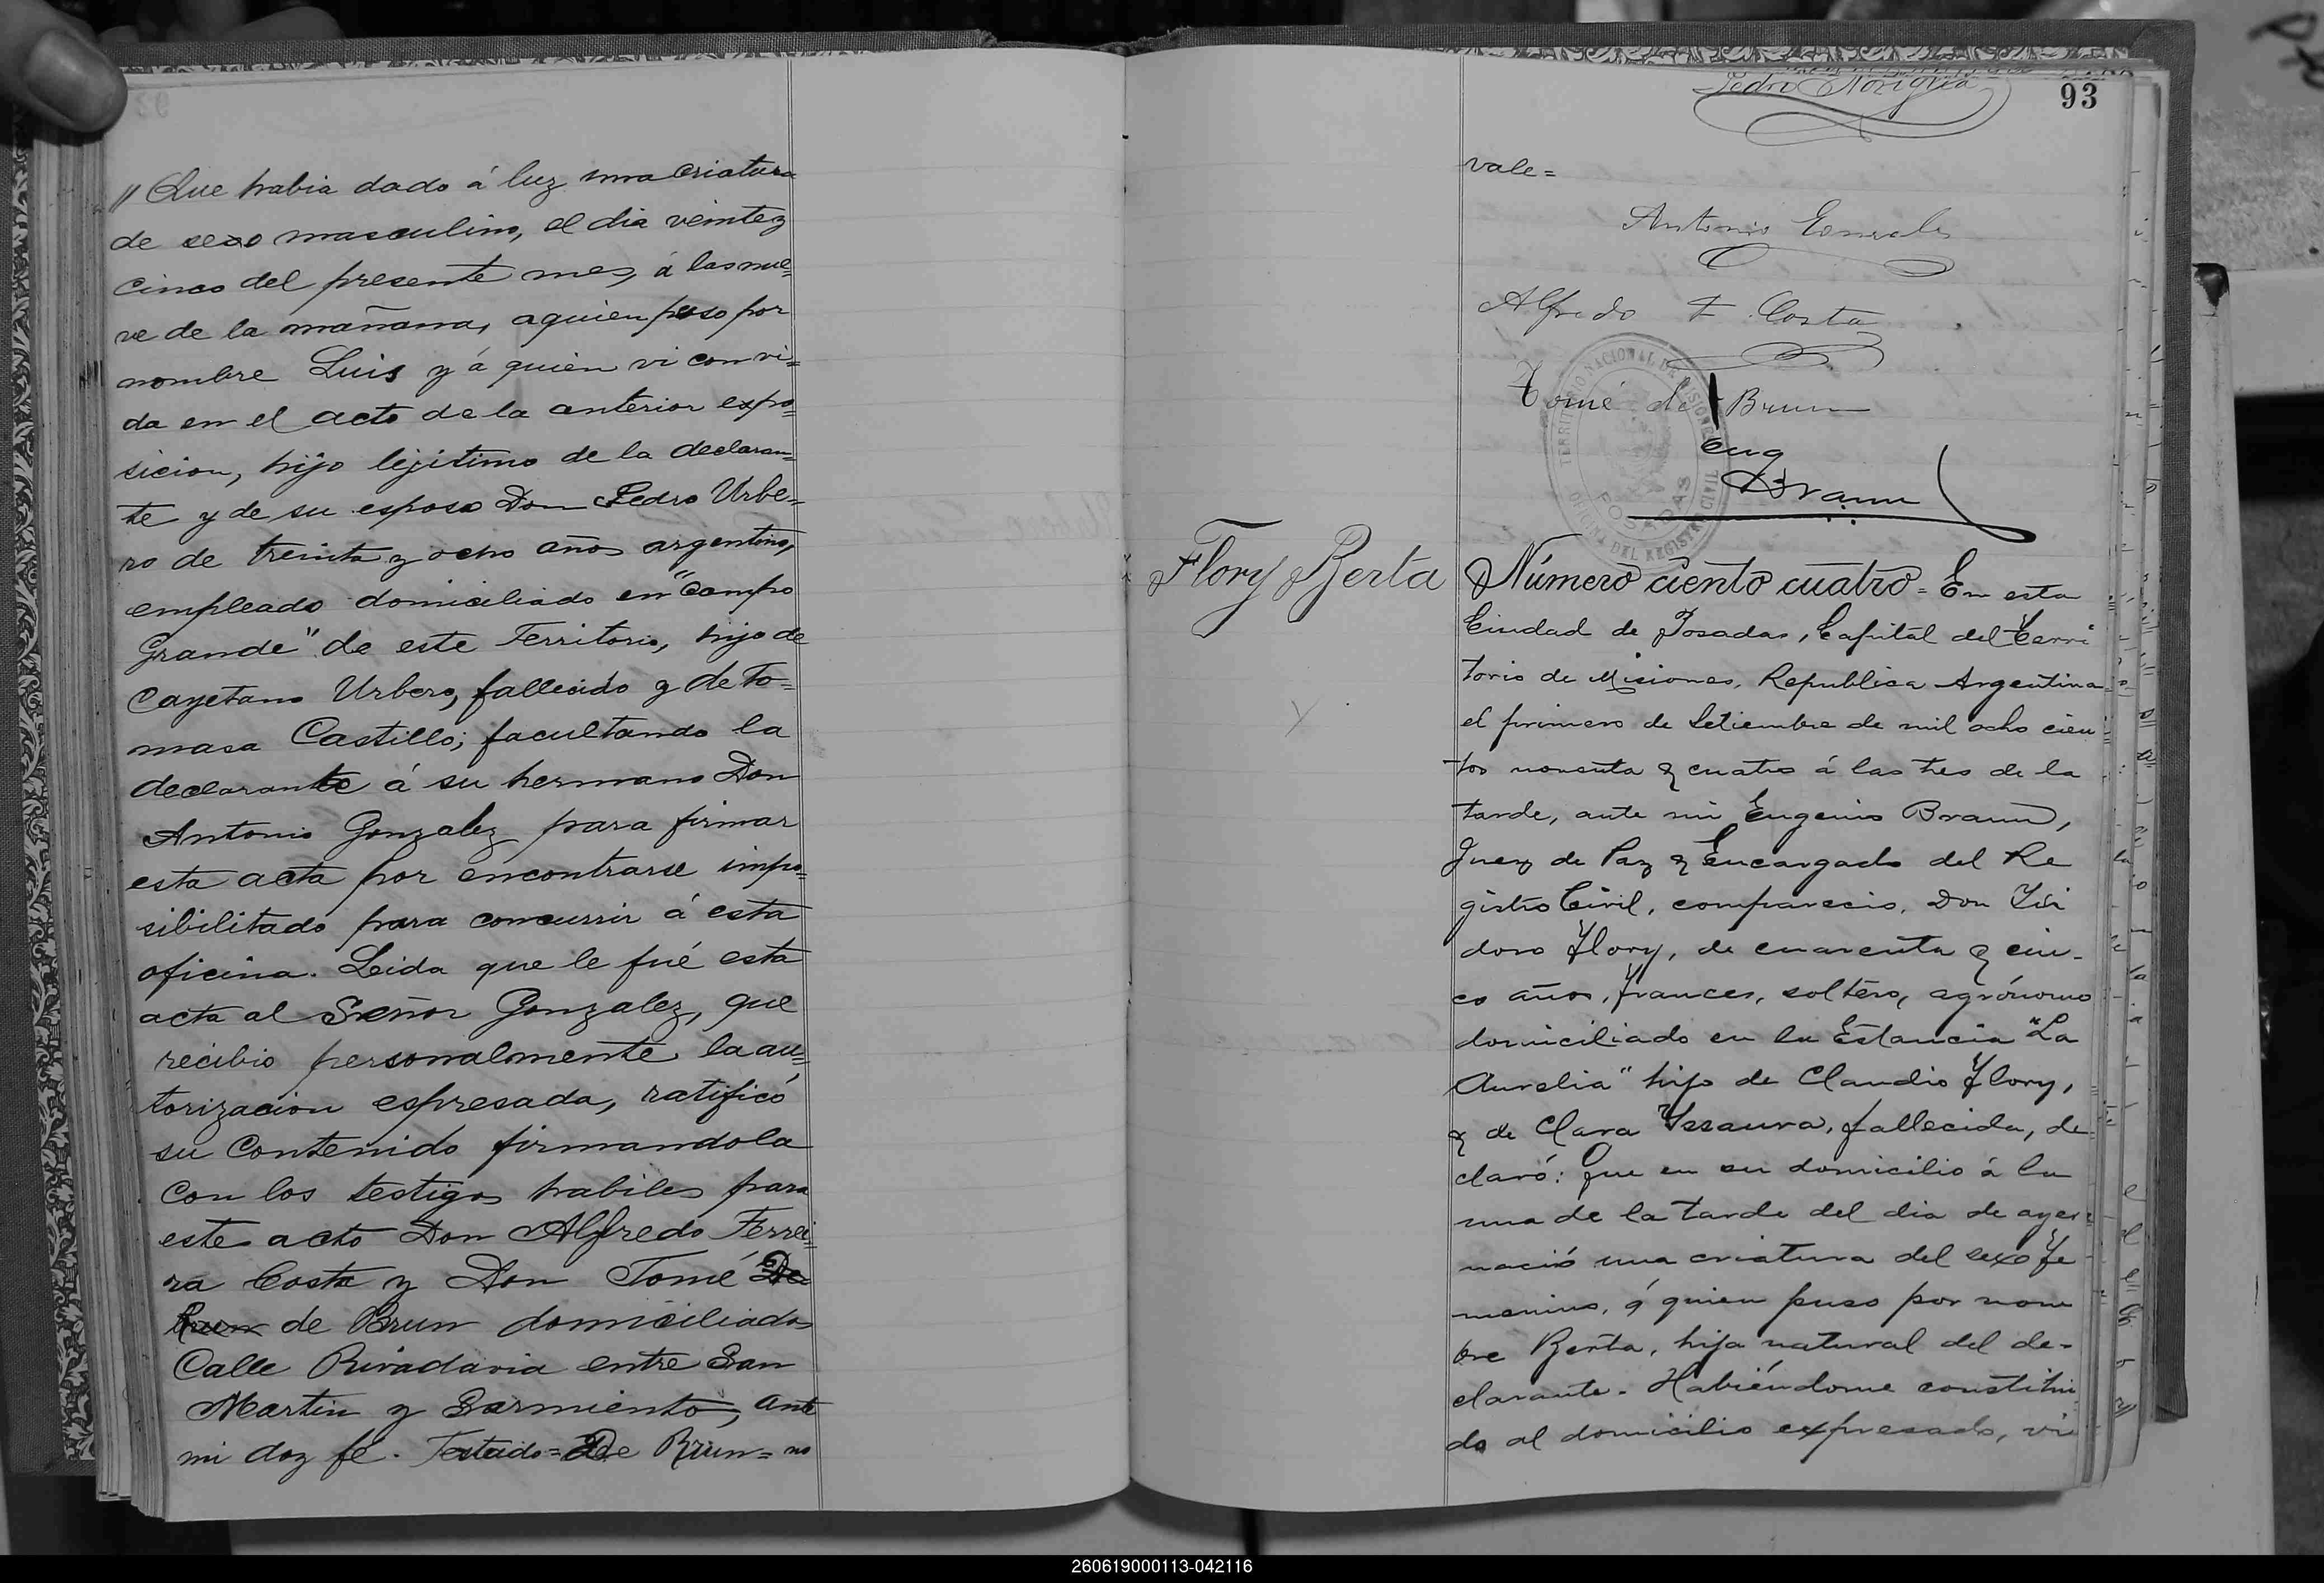 // Que habia dado á luz una criatura
de sexo masculino, el dia veintey
cinco del presente mes, á las nue=
ve de la mañana, a quien puso por
nombre Luis y á quien vi con vi=
da en el acto de la anterior expo=
sicion, hijo lejitimo de la declaran=
te y de su esposo Don Pedro Urbe=
ro de treinta y ocho años argentino,
empleado domiciliado en "Campo
Grande" de este Territorio, hijo de
Cayetano Urbero, fallecido y de To=
masa Castillo; facultando la
declarante á su hermano Don
Antonio Gonzalez para firmar
esta acta por encontrarse impo=
sibilitado para concurrir á esta
oficina. Leida que le fué esta
acta al Señor Gonzalez, que
recibio personalmente la au=
torizacion espresada, ratificó
su contenido firmandola
con los testigos habiles para
este acto Don Alfredo Ferrei=
ra Costa y Don Tomé De
Brun de Brun domiciliados
Calle Rivadavia entre San
Martin y Sarmiento, ante
mi doy fé. Testado=De Brun=no
Pedro Noriguia
93
vale=
Antonio Gonzales
Alfredo F. Costa
Tomé de Brun
TERRITORIO NACIONAL DE MISIONES
POSADAS
OFICINA DEL REGISTRO CIVIL
Eug
Braun
Flory Berta
Número ciento cuatro = En esta
Ciudad de Posadas, Capital del Terri
torio de Misiones, Republica Argentina
el primero de Setiembre de mil ocho cien
tos noventa y cuatro á las tres de la
tarde, ante mi Eugenio Braun,
Juez de Paz y Encargado del Re
gistro Civil, comparecio, Don Isi
doro Flory, de cuarenta y cin-
co años, frances, soltero, agrónomo
domiciliado en la Estancia "La
Aurelia" hijo de Claudio Flory,
y de Clara Yssaura, fallecida, de
claró: Que en su domicilio á la
una de la tarde del dia de ayer
nació una criatura del sexo fe
menino, á quien puso por nom
bre Berta, hija natural del de-
clarante. Habiéndome constitui
do al domicilio expresado, vi
260619000113-042116